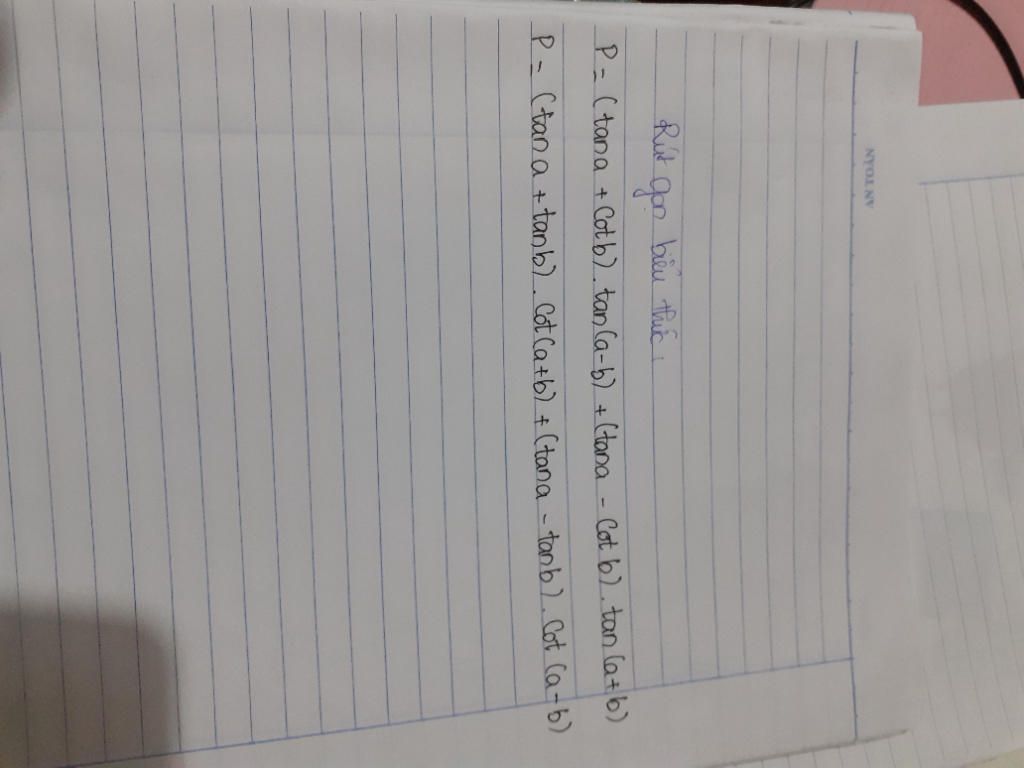 AN TOÀN
Rút gọn biểu thức:
P = (tana + cotb).tan(a-b) + (tana - cotb).tan(a+b)
P = (tana + tanb).cot(a+b) + (tana - tanb).cot(a-b)